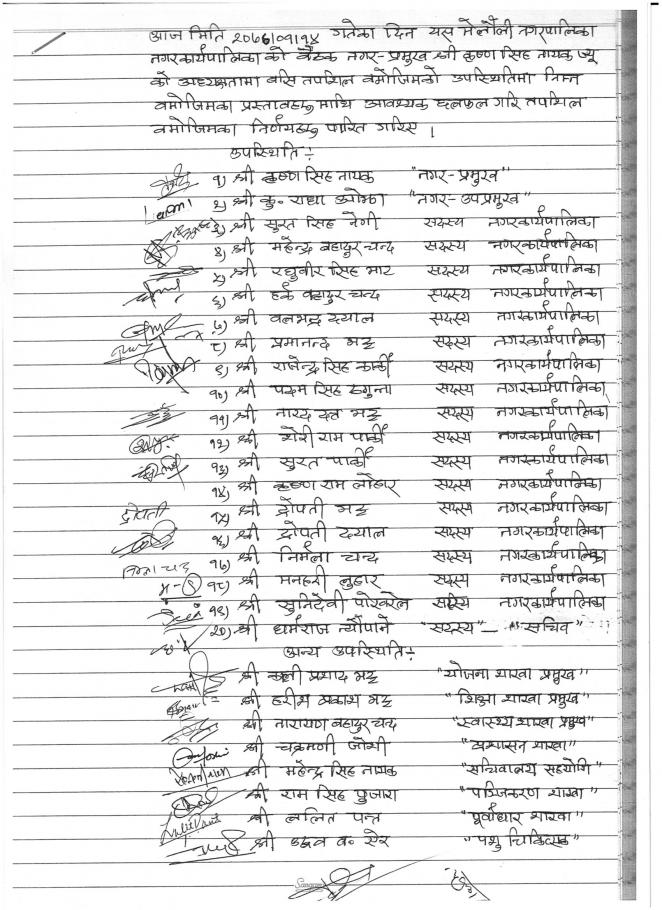 आज मिति २०७७/०१/१४ गतेका दिन यस मेलौली नगरपालिका
नगरकार्यपालिका को बैठक नगर-प्रमुख श्री कृष्ण सिंह नायक ज्यू
को अध्यक्षतामा बसि तपशिल बमोजिमको उपस्थितिमा निम्न
बमोजिमका प्रस्तावहरु माथि आवश्यक छलफल गरि तपशिल
बमोजिमका निर्णयहरु पारित गरिए ।
उपस्थिति :-
१) श्री कृष्ण सिंह नायक "नगर-प्रमुख"
२) श्री कु. राधा ओझा "नगर-उपप्रमुख"
३) श्री सुरत सिंह नेगी सदस्य नगरकार्यपालिका
४) श्री महेन्द्र बहादुर चन्द सदस्य नगरकार्यपालिका
५) श्री रघुवीर सिंह भाट सदस्य नगरकार्यपालिका
६) श्री हर्क बहादुर चन्द सदस्य नगरकार्यपालिका
७) श्री बलभद्र दयाल सदस्य नगरकार्यपालिका
८) श्री प्रमानन्द भट्ट सदस्य नगरकार्यपालिका
९) श्री राजेन्द्र सिंह कार्की सदस्य नगरकार्यपालिका
१०) श्री पदम सिंह ठगुन्ना सदस्य नगरकार्यपालिका
११) श्री नारद दत्त भट्ट सदस्य नगरकार्यपालिका
१२) श्री शेरी राम पार्की सदस्य नगरकार्यपालिका
१३) श्री सुरत पार्की सदस्य नगरकार्यपालिका
१४) श्री कृष्ण राम लोहार सदस्य नगरकार्यपालिका
द्रोपती १५) श्री द्रोपती भट्ट सदस्य नगरकार्यपालिका
१६) श्री द्रोपती दयाल सदस्य नगरकार्यपालिका
१७) श्री निर्मला चन्द सदस्य नगरकार्यपालिका
१८) श्री मनहरी लुहार सदस्य नगरकार्यपालिका
१९) श्री सुनिदेवी पोखरेल सदस्य नगरकार्यपालिका
२०) श्री धर्मराज न्यौपाने "सदस्य" – "सचिव"
अन्य उपस्थिति :-
श्री काली प्रशाद भट्ट "योजना शाखा प्रमुख"
श्री हरीश प्रकाश भट्ट "शिक्षा शाखा प्रमुख"
श्री नारायण बहादुर चन्द "स्वास्थ्य शाखा प्रमुख"
श्री चक्रमणी जोशी "प्रशासन शाखा"
श्री महेन्द्र सिंह नायक "सचिवालय सहयोगि"
श्री राम सिंह पुजारा "पञ्जिकरण शाखा"
श्री ललित पन्त "पूर्वाधार शाखा"
श्री उद्धव ब. सेर "पशु चिकित्सक"